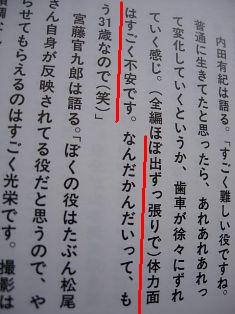 内田有紀は語る。「すごく難しい役ですね。
普通に生きてたと思ったら、あれあれあれっ
て変化していくというか、歯車が徐々にずれ
ていく感じ。(全編ほぼ出ずっ張りで)体力面
はすごく不安です。なんだかんだいって、も
う31歳なので(笑)」
宮藤官九郎は語る。「ぼくの役はたぶん松尾
さん自身が反映されてる役だと思うので、や
らせてもらえるのはすごく光栄です。撮影は